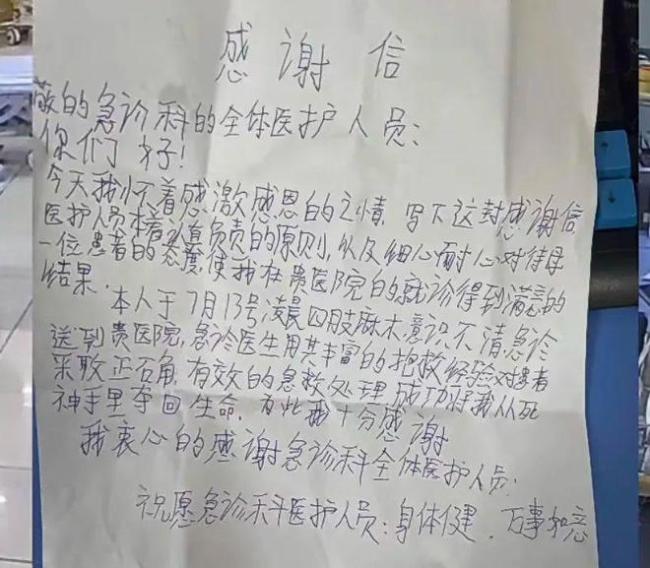 感谢信
敬的急诊科的全体医护人员:
你们好!
今天我怀着感激感恩的之情,写下这封感谢信
医护人员本着认真负责的原则,以及细心耐心对待每
一位患者的态度,使我在贵医院的就诊得到满意的
结果.
本人于7月13号,凌晨四肢麻木,意识不清急诊
送到贵医院,急诊医生用其丰富的抢救经验对患者
采取正石角,有效的急救处理,成功将我从死
神手里夺回生命.为此我十分感谢
我衷心的感谢急诊科全体医护人员:
祝愿急诊科医护人员:身体健.万事如意